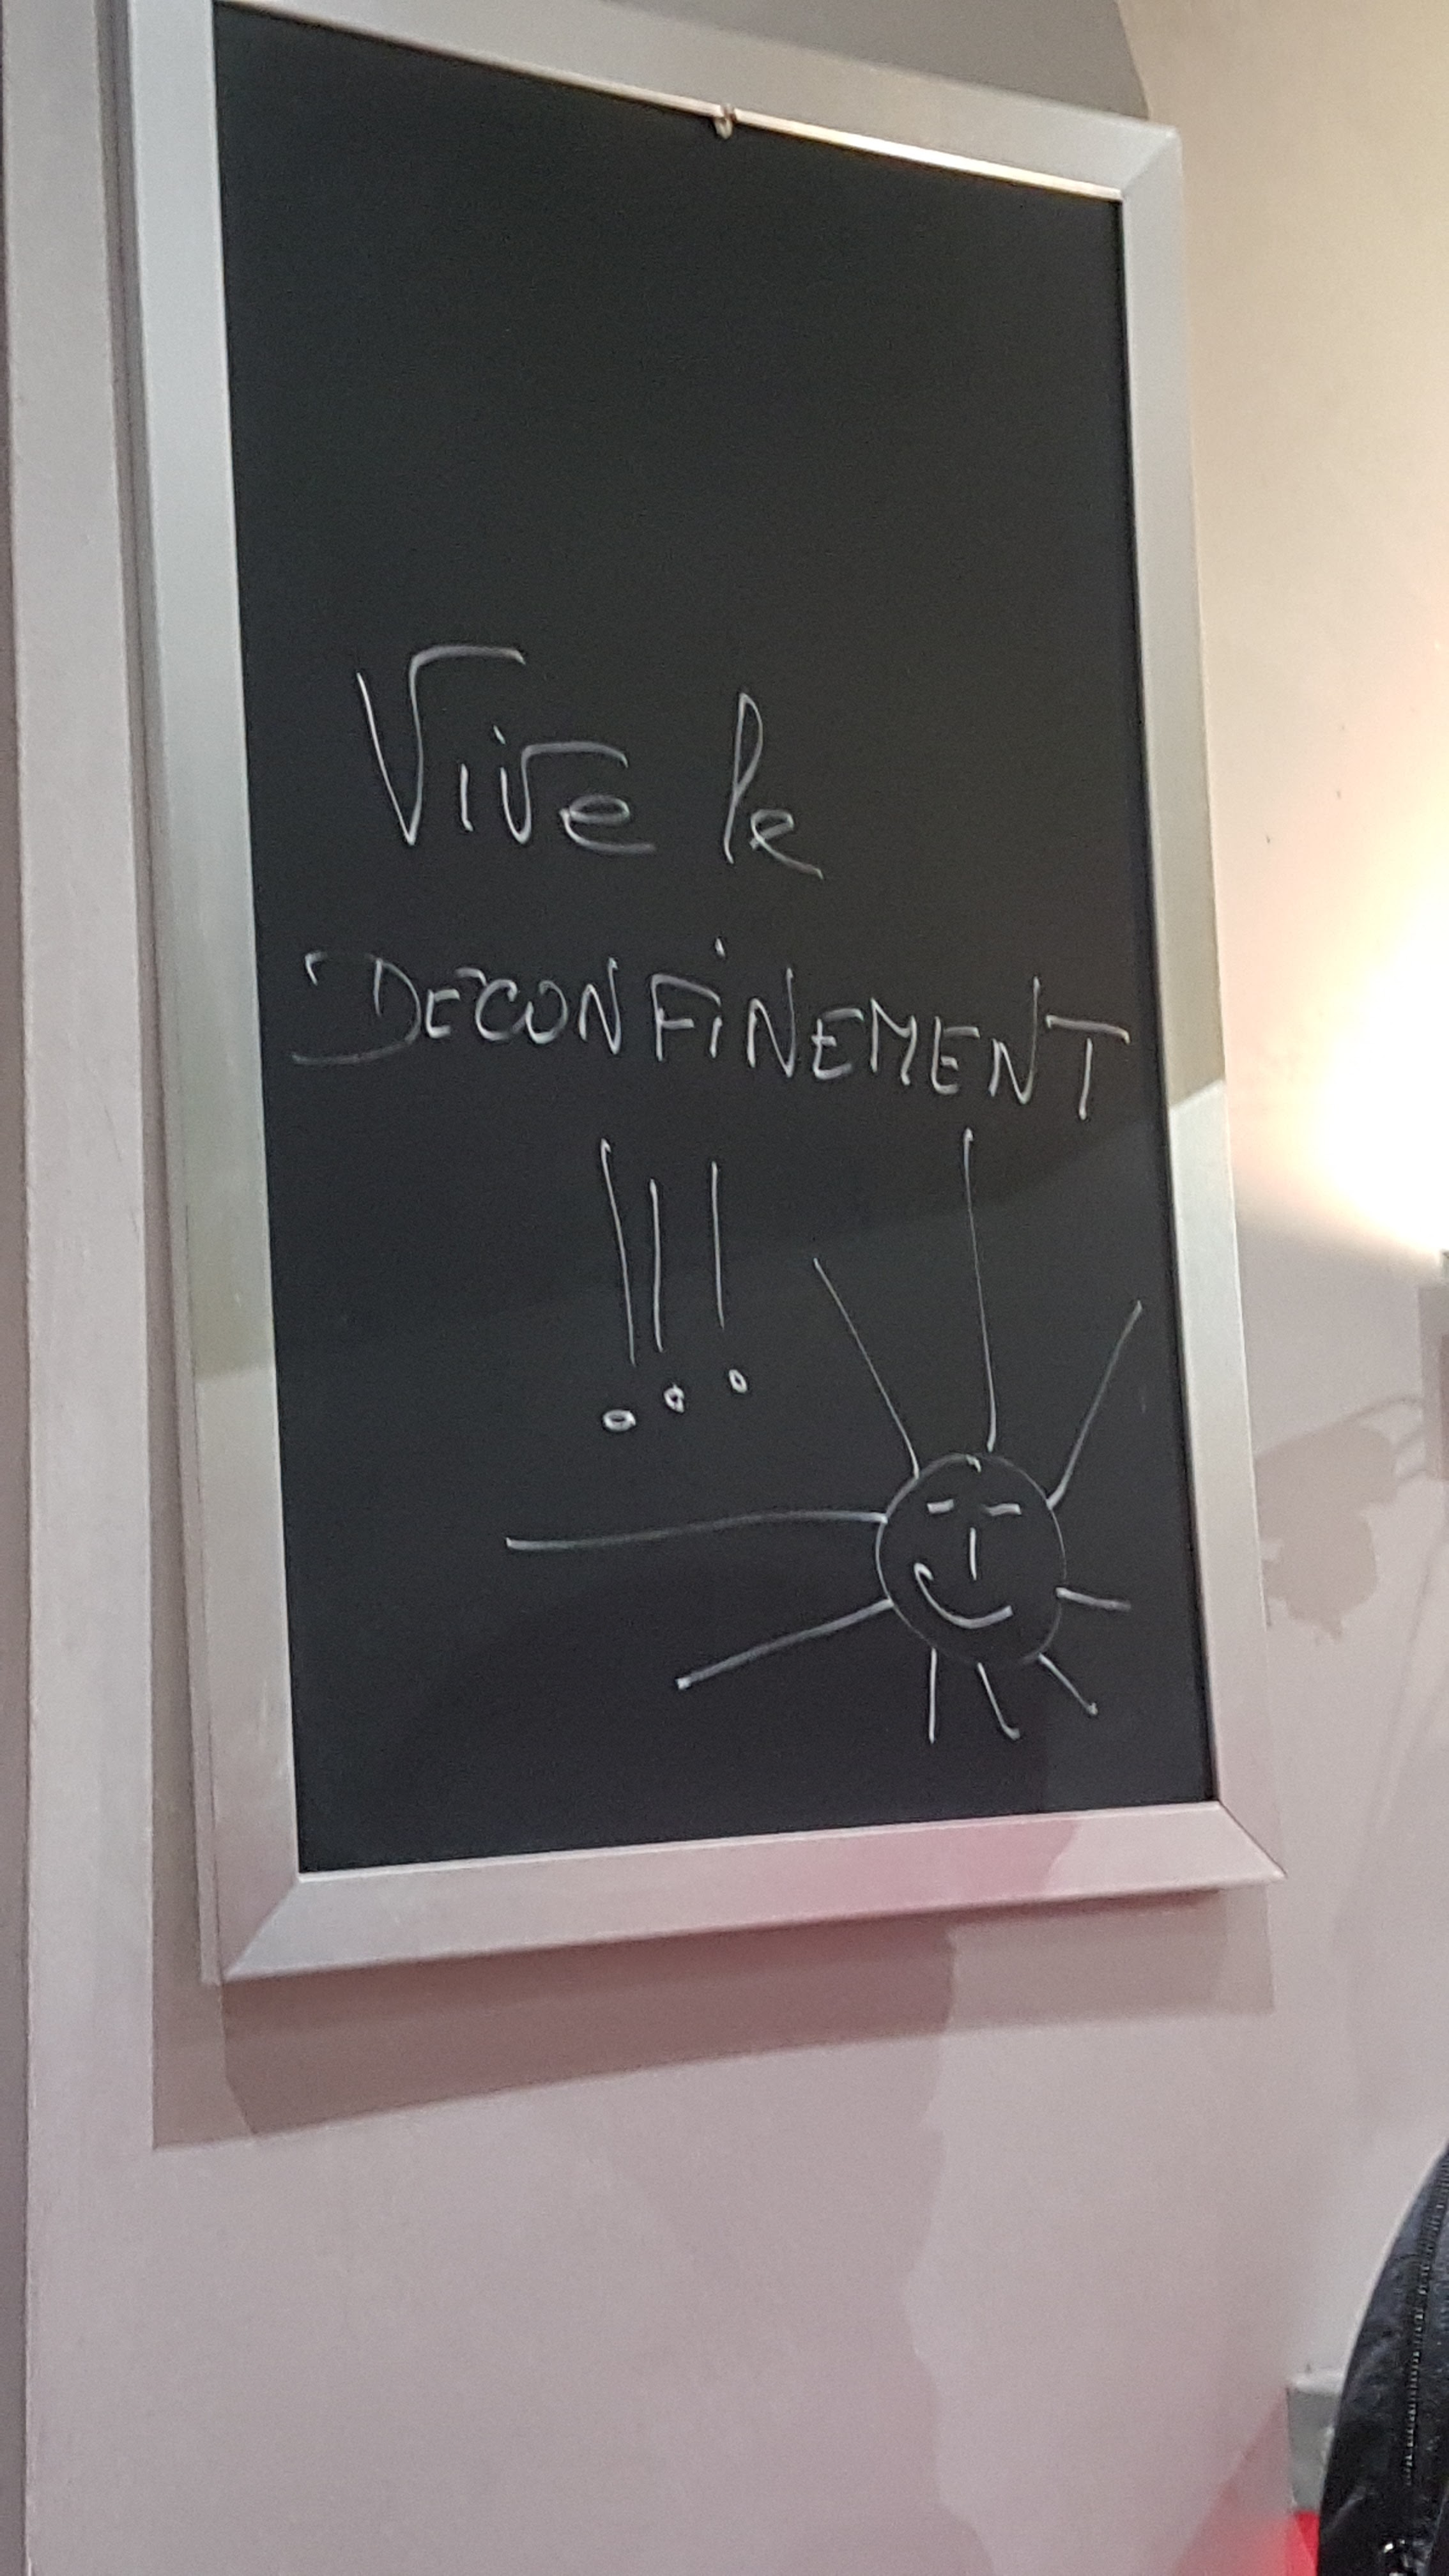 Vive le
DECONFINEMENT
!!!